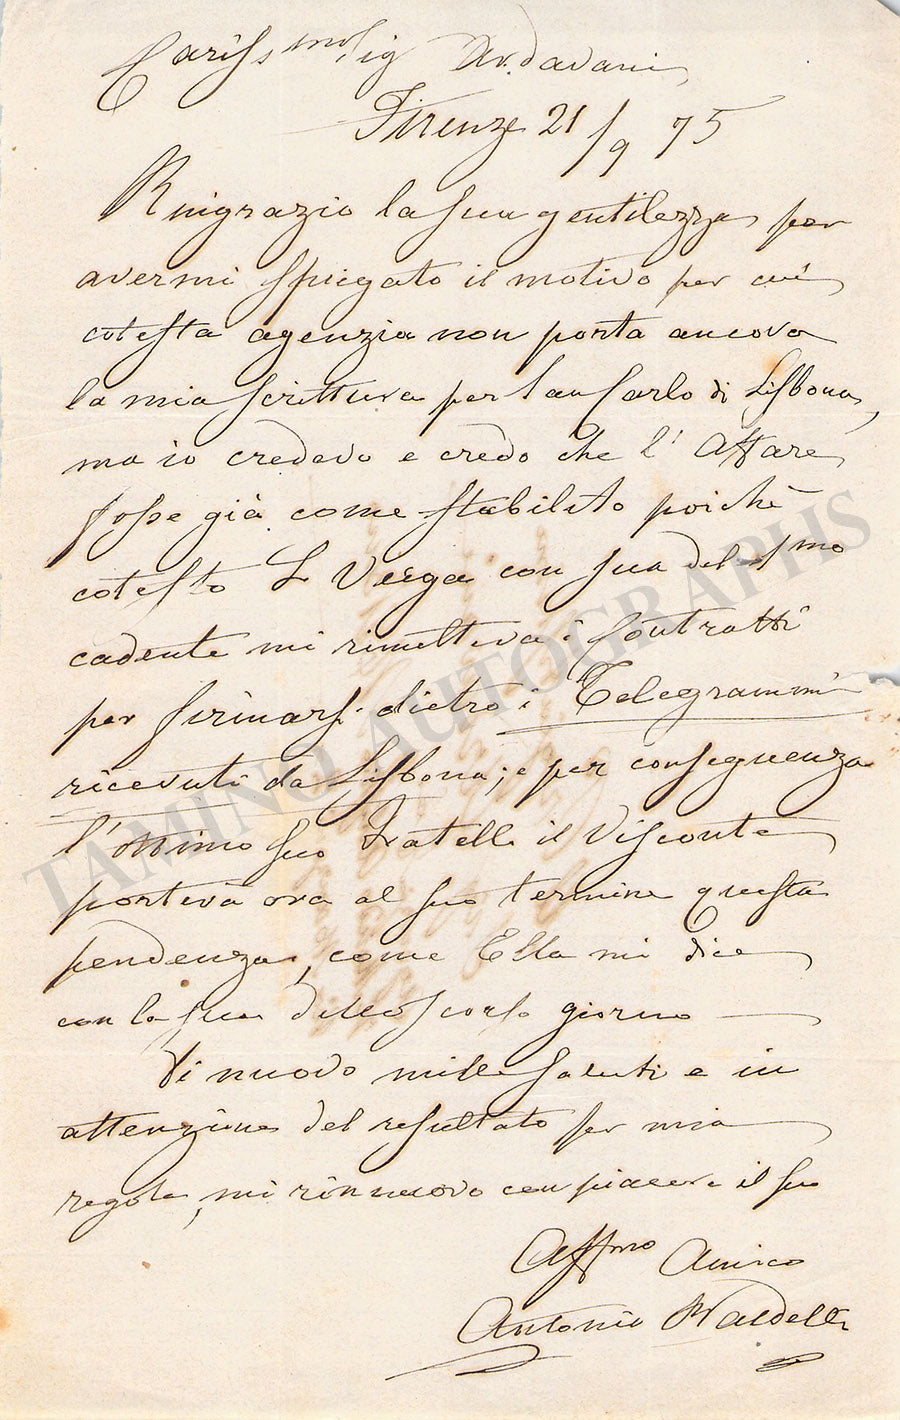 Cariss.mo Sig
Firenze 21/9 75
Ringrazio la sua gentilezza per
avermi spiegato il motivo per cui
cotesta agenzia non porta ancora
la mia scrittura per San Carlo di Lisbona,
ma io credevo e credo che l'Affare
fosse già come stabilito poichè
cotesto L Verga con sua del 1mo
cadente mi rimetteva i Contratti
per firmarsi dietro i Telegrammi
ricevuti da Lisbona; e per conseguenza
l'ottimo suo Fratello il Visconte
porterà ora al suo termine questa
pendenza, come Ella mi dice
con la sua dello scorso giorno
Di nuovo mille saluti e in
attenzione del resultato per mia
regola, mi rinnuovo con piacere il suo
Affmo Amico
Antonio
TAMINO AUTOGRAPHS